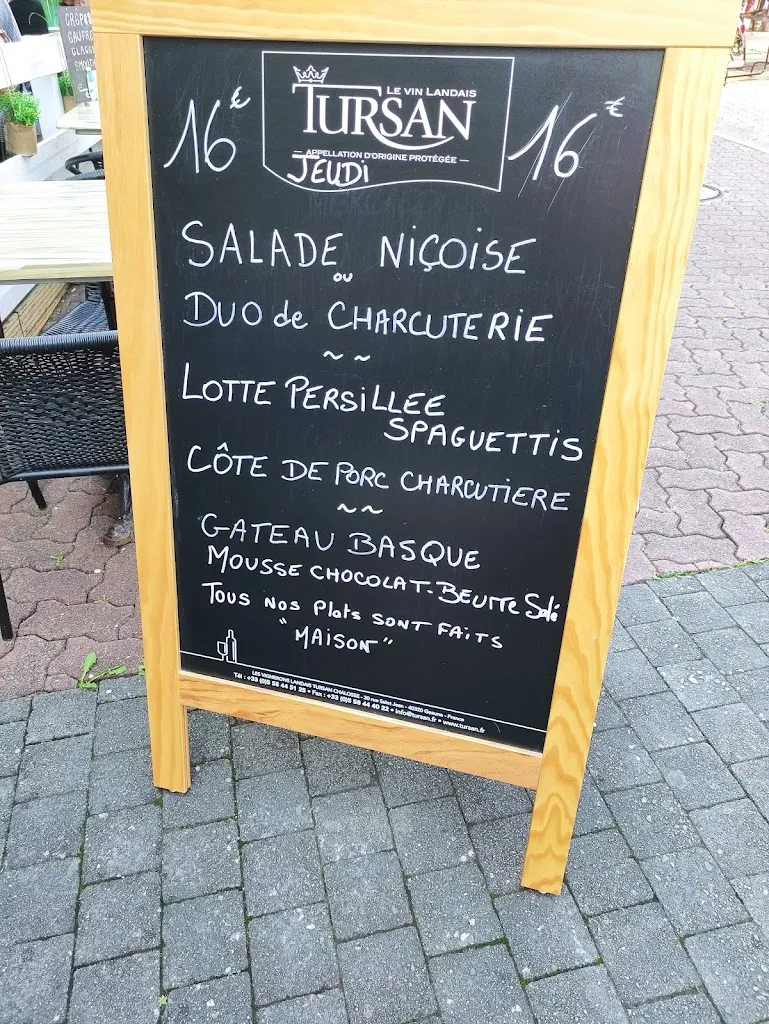 CRÊPES
GAUFRES
GLACES
SMOOTHIE
16€
LE VIN LANDAIS
TURSAN
APPELLATION D'ORIGINE PROTÉGÉE
JEUDI
16€
SALADE NIÇOISE
OU
DUO de CHARCUTERIE
~ ~
LOTTE PERSILLEE
SPAGUETTIS
CÔTE DE PORC CHARCUTIERE
~ ~
GATEAU BASQUE
MOUSSE CHOCOLAT-BEURRE Salé
TOUS NOS Plats SONT FAITS
"MAISON"
LES VIGNERONS LANDAIS TURSAN CHALOSSE - 30 rue Saint Jean - 40320 Geaune - France
Tél : +33 (0)5 58 44 51 25 • Fax : +33 (0)5 58 44 40 22 • info@tursan.fr • www.tursan.fr